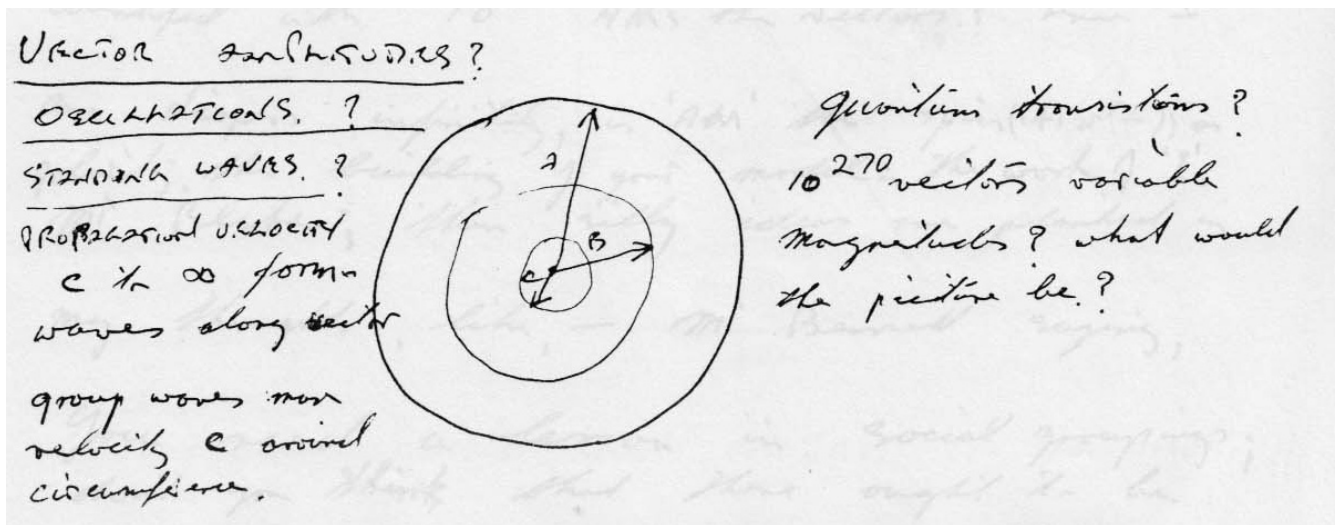 VECTOR AMPLITUDES?
OSCILLATIONS. ?
STANDING WAVES. ?
PROPAGATION VELOCITY
c to ∞ form
waves along vector
group waves max
velocity c around
circumference.
A
B
C
quantum transistions?
10^270 vectors variable
magnitudes? what would
the picture be?